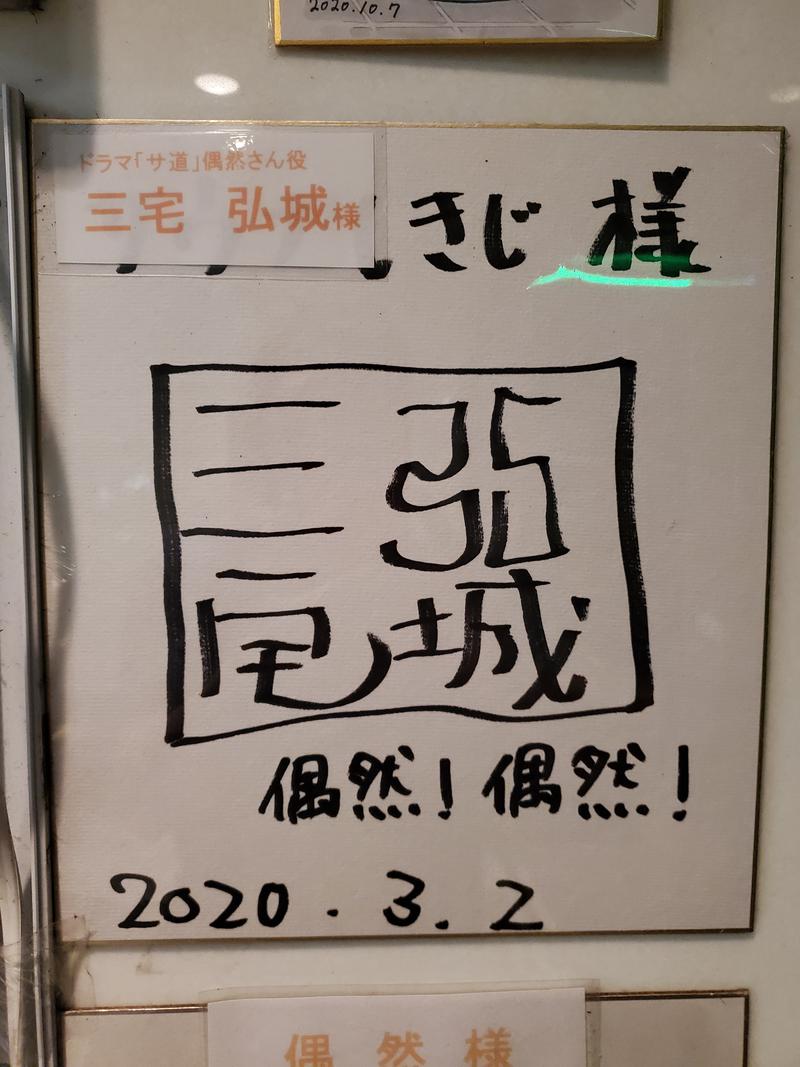 2020.10.7
ドラマ「サ道」偶然さん役
三宅 弘城様
きじ 様
三宅 弘城
偶然！偶然！
2020.3.2
偶然様